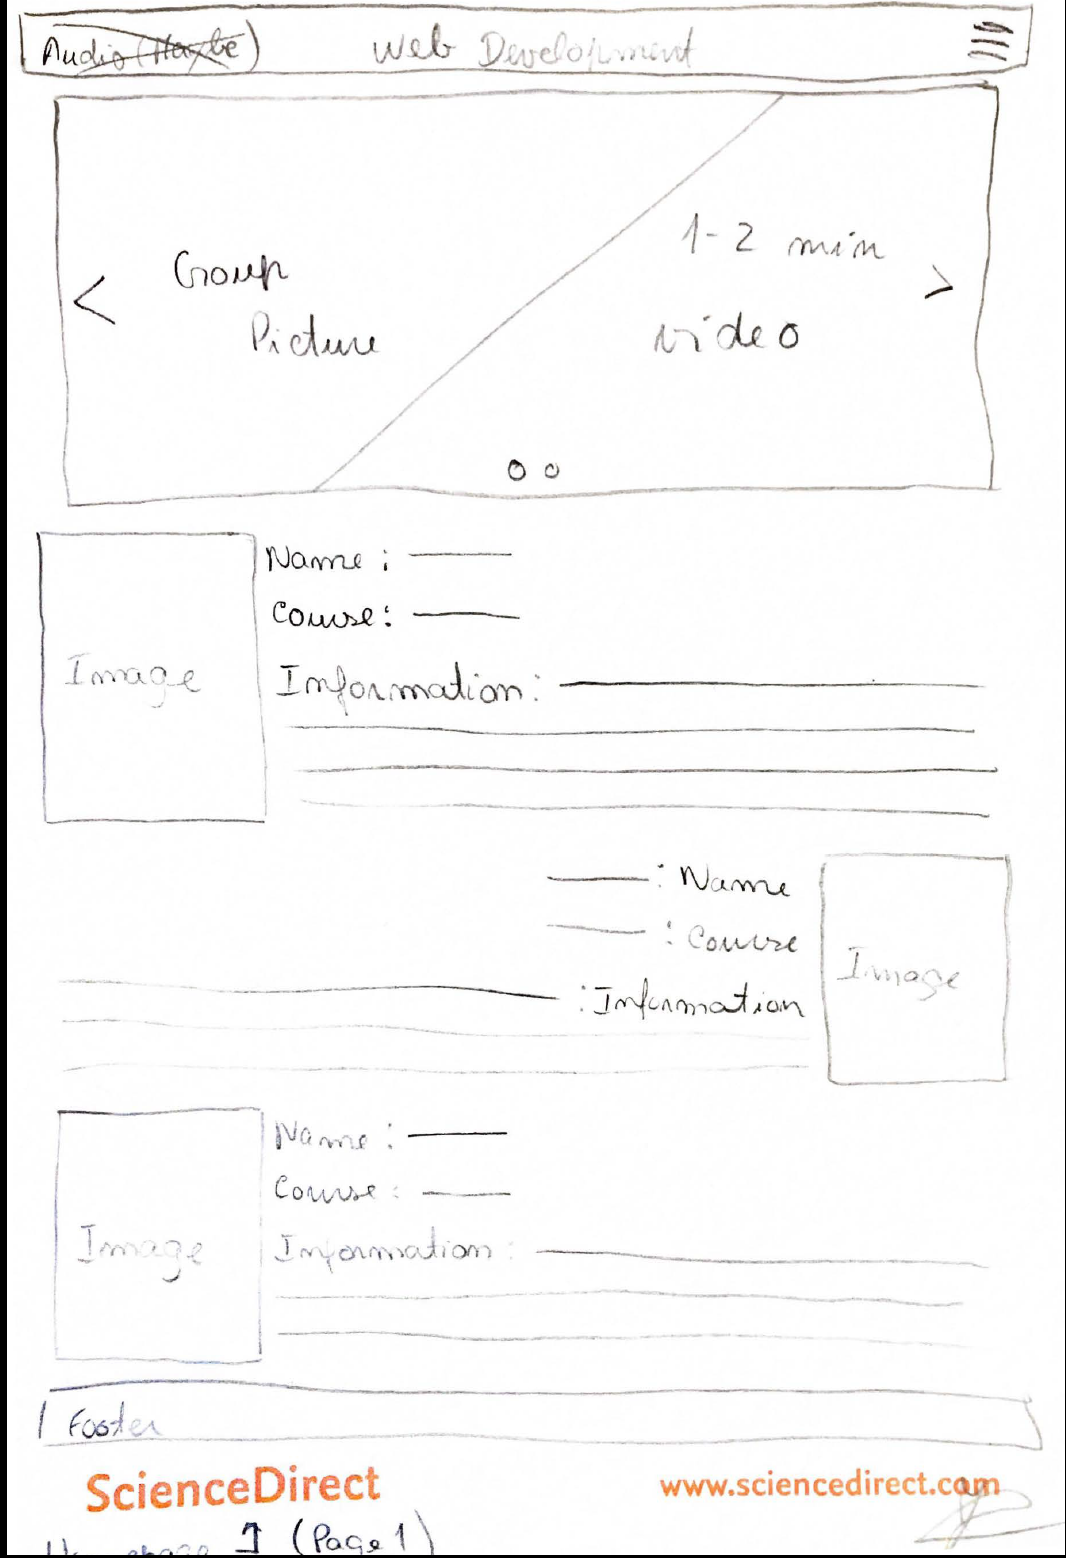 Audio (Maybe) Web Development
Group
Picture
1-2 min
video
Image
Name:
Course:
Information:
: Name
: Course
: Information
Image
Name:
Course:
Information:
Image
Footer
ScienceDirect www.sciencedirect.com
(Page 1)